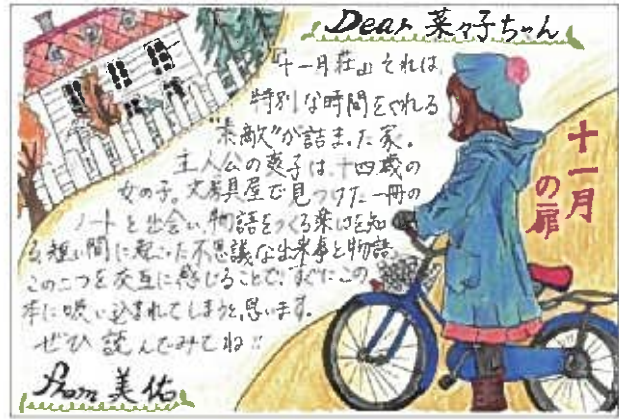 Dear 菜々子ちゃん
『十一月荘』それは、
特別な時間をくれる
"素敵"が詰まった家。
主人公の爽子は、十四歳の
女の子。文房具屋で見つけた一冊の
ノートと出会い、物語をつくる楽しさを知
る。短い間に起こった不思議な出来事と物語、
この二つを交互に感じることで、すぐにこの
本に吸い込まれてしまうと思います。
ぜひ読んでみてね!!
From 美佑
十一月
の扉